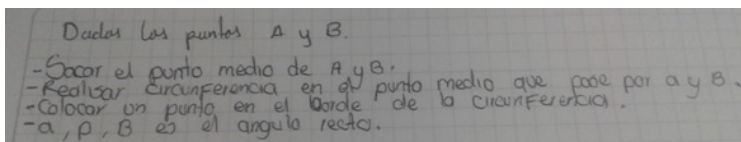 Dadas los puntos A y B.
-Sacar el punto medio de A y B.
-Realisar circunferencia en el punto medio que pase por a y B.
-Colocar un punto en el borde de la circunferencia.
-a, p, B es el angulo recto.